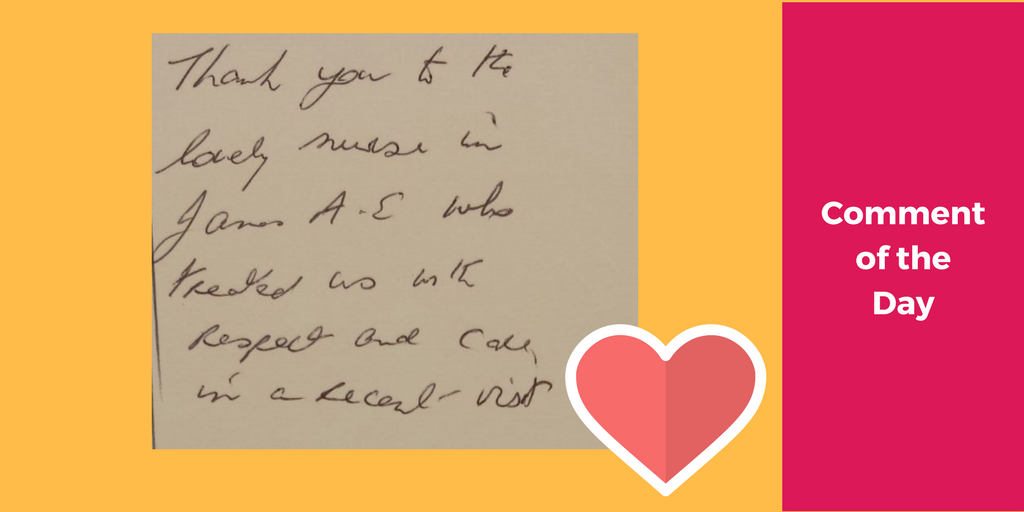 Thank you to the
lovely nurse in
James A.E who
treated us with
respect and care
in a recent visit
Comment
of the
Day